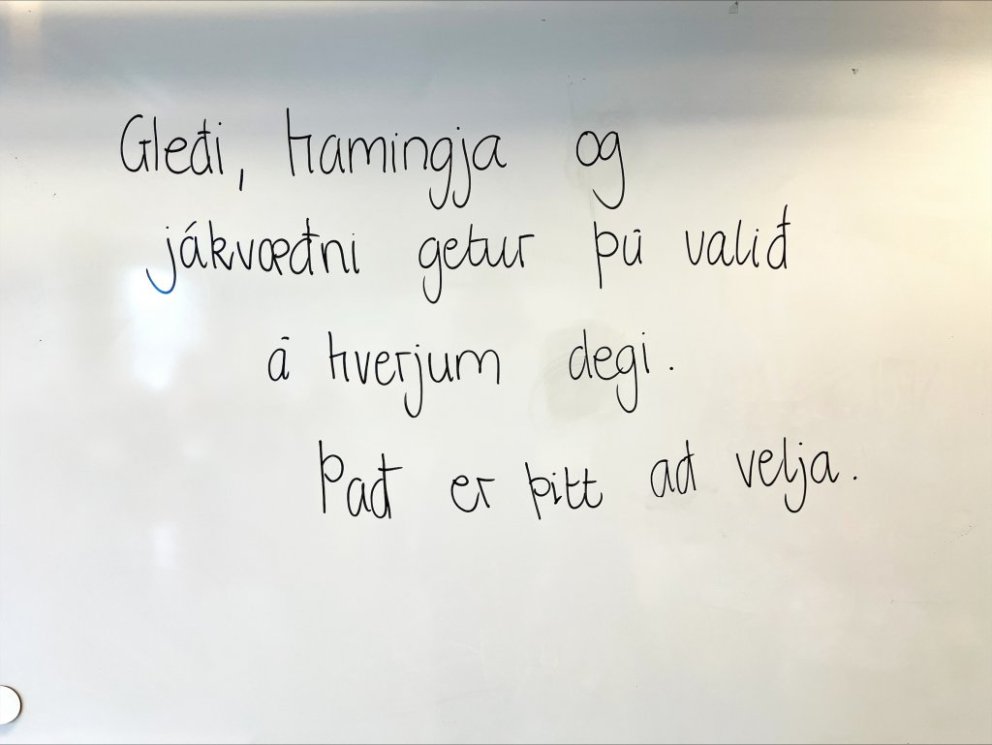 Gleði, hamingja og
jákvæðni getur þú valið
á hverjum degi.
Það er þitt að velja.